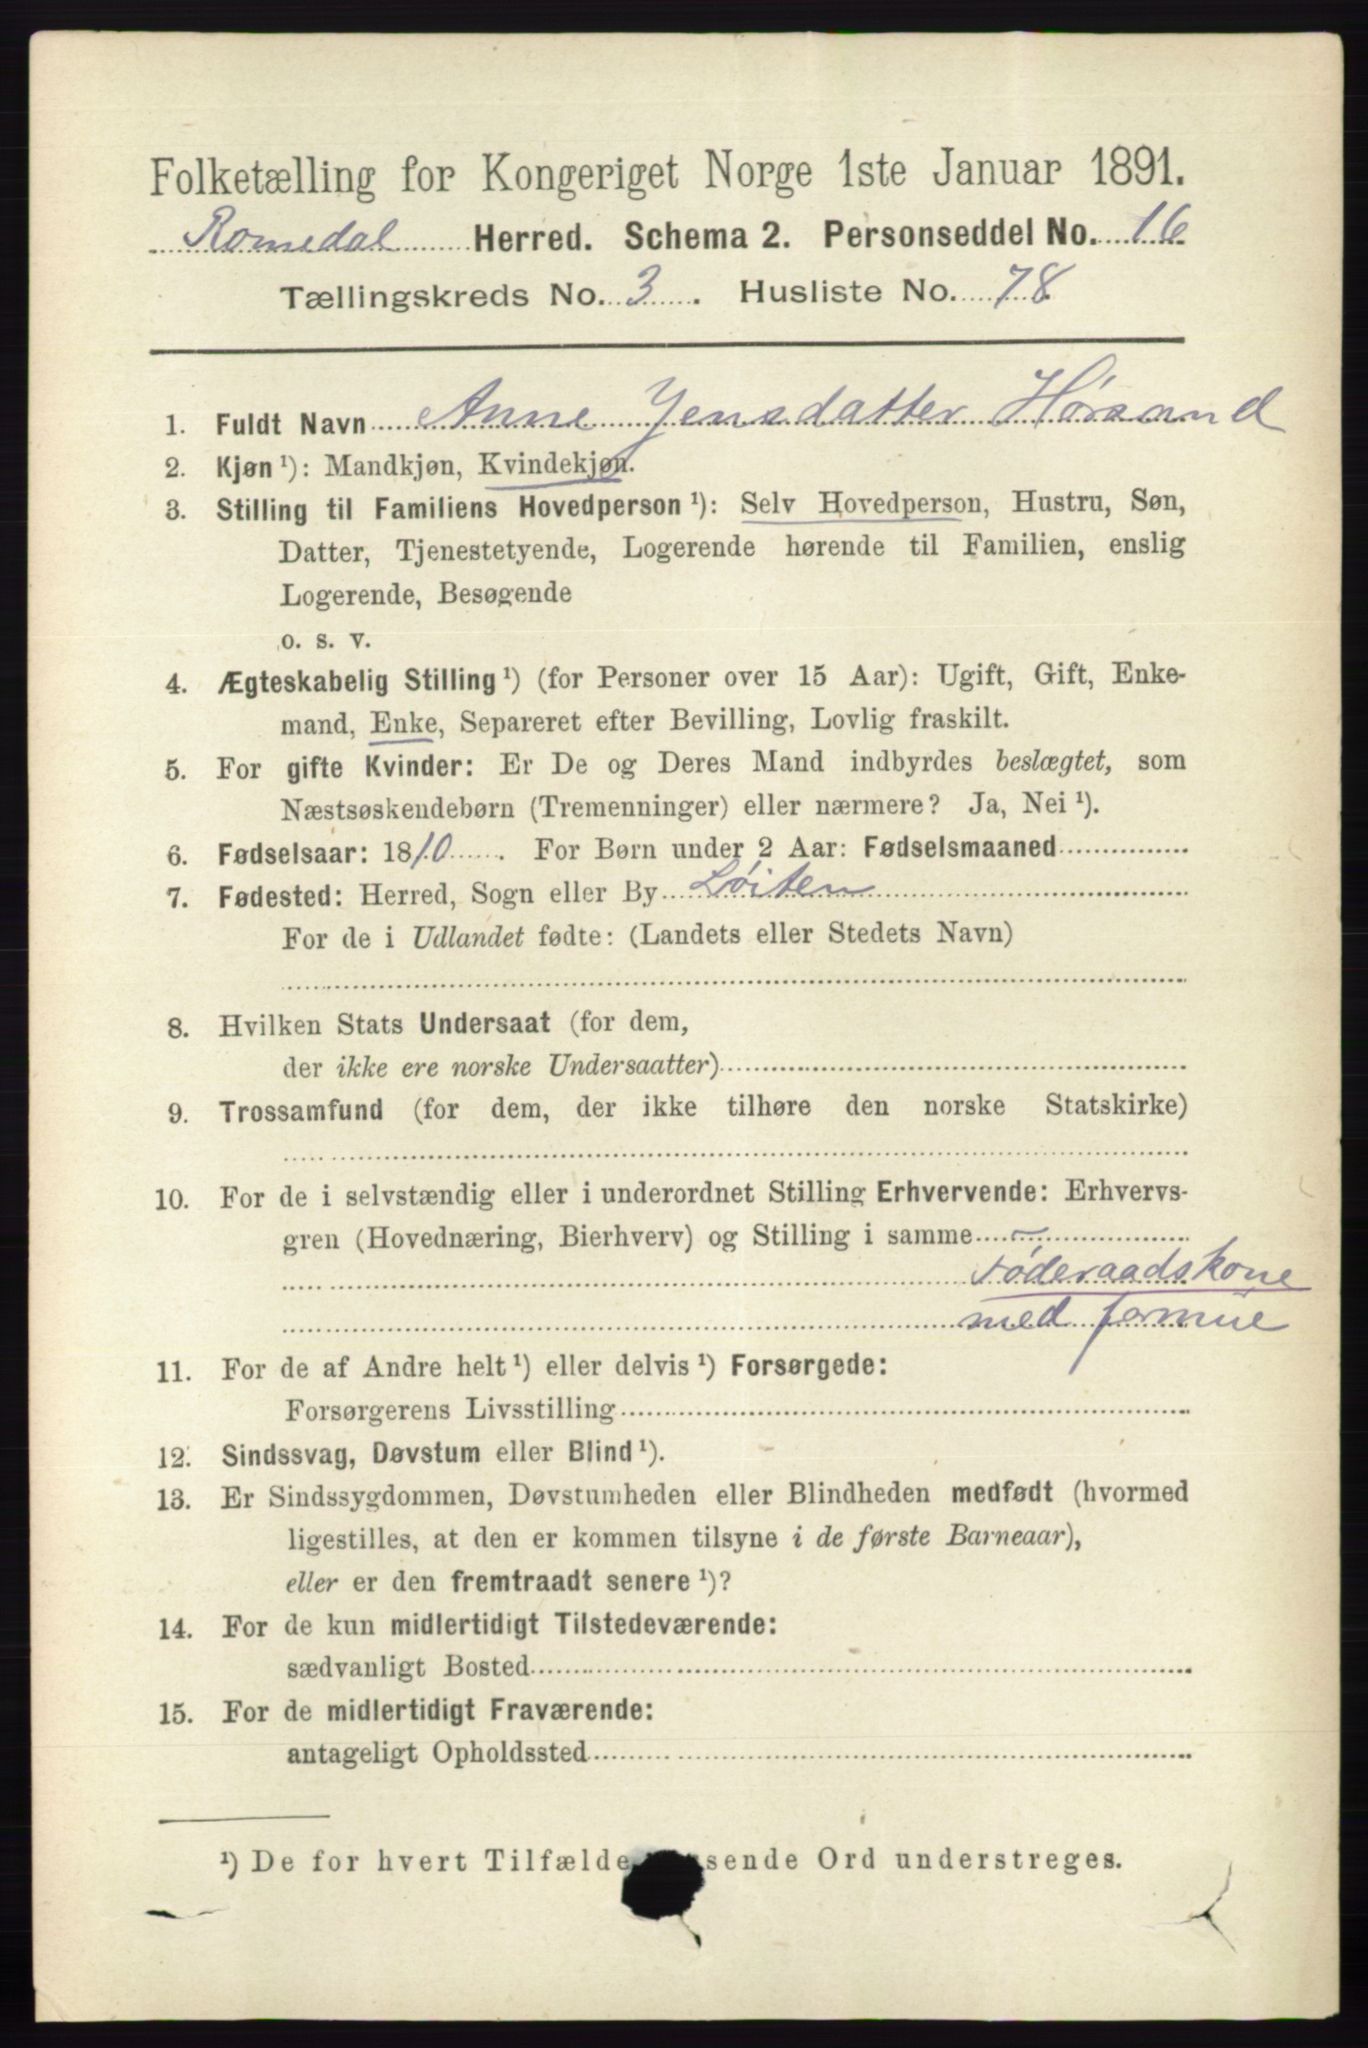 Folketælling for Kongeriget Norge 1ste Januar 1891.
Romedal Herred. Schema 2. Personseddel No. 16
Tællingskreds No. 3. Husliste No. 78
1. Fuldt Navn Anne Jensdatter Hørsand
2. Kjøn ¹): Mandkjøn, Kvindekjøn.
3. Stilling til Familiens Hovedperson ¹): Selv Hovedperson, Hustru, Søn,
Datter, Tjenestetyende, Logerende hørende til Familien, enslig
Logerende, Besøgende
o. s. v.
4. Ægteskabelig Stilling ¹) (for Personer over 15 Aar): Ugift, Gift, Enke-
mand, Enke, Separeret efter Bevilling, Lovlig fraskilt.
5. For gifte Kvinder: Er De og Deres Mand indbyrdes beslægtet, som
Næstsøskendebørn (Tremenninger) eller nærmere? Ja, Nei ¹).
6. Fødselsaar: 1810. For Børn under 2 Aar: Fødselsmaaned
7. Fødested: Herred, Sogn eller By Løiten
For de i Udlandet fødte: (Landets eller Stedets Navn)
8. Hvilken Stats Undersaat (for dem,
der ikke ere norske Undersaatter)
9. Trossamfund (for dem, der ikke tilhøre den norske Statskirke)
10. For de i selvstændig eller i underordnet Stilling Erhvervende: Erhvervs-
gren (Hovednæring, Bierhverv) og Stilling i samme
Føderaadskone
med formue
11. For de af Andre helt ¹) eller delvis ¹) Forsørgede:
Forsørgerens Livsstilling
12. Sindssvag, Døvstum eller Blind ¹).
13. Er Sindssygdommen, Døvstumheden eller Blindheden medfødt (hvormed
ligestilles, at den er kommen tilsyne i de første Barneaar),
eller er den fremtraadt senere ¹)?
14. For de kun midlertidigt Tilstedeværende:
sædvanligt Bosted
15. For de midlertidigt Fraværende:
antageligt Opholdssted
¹) De for hvert Tilfælde passende Ord understreges.